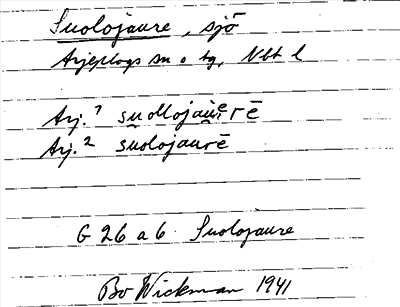 Suolojaure, sjö
Arjeplogs sn o tg, Nbt l
Arj.1 suollojau̯erē
Arj.2 suolojaurē
G 26 a 6 Suolojaure
Bo Wickman 1941